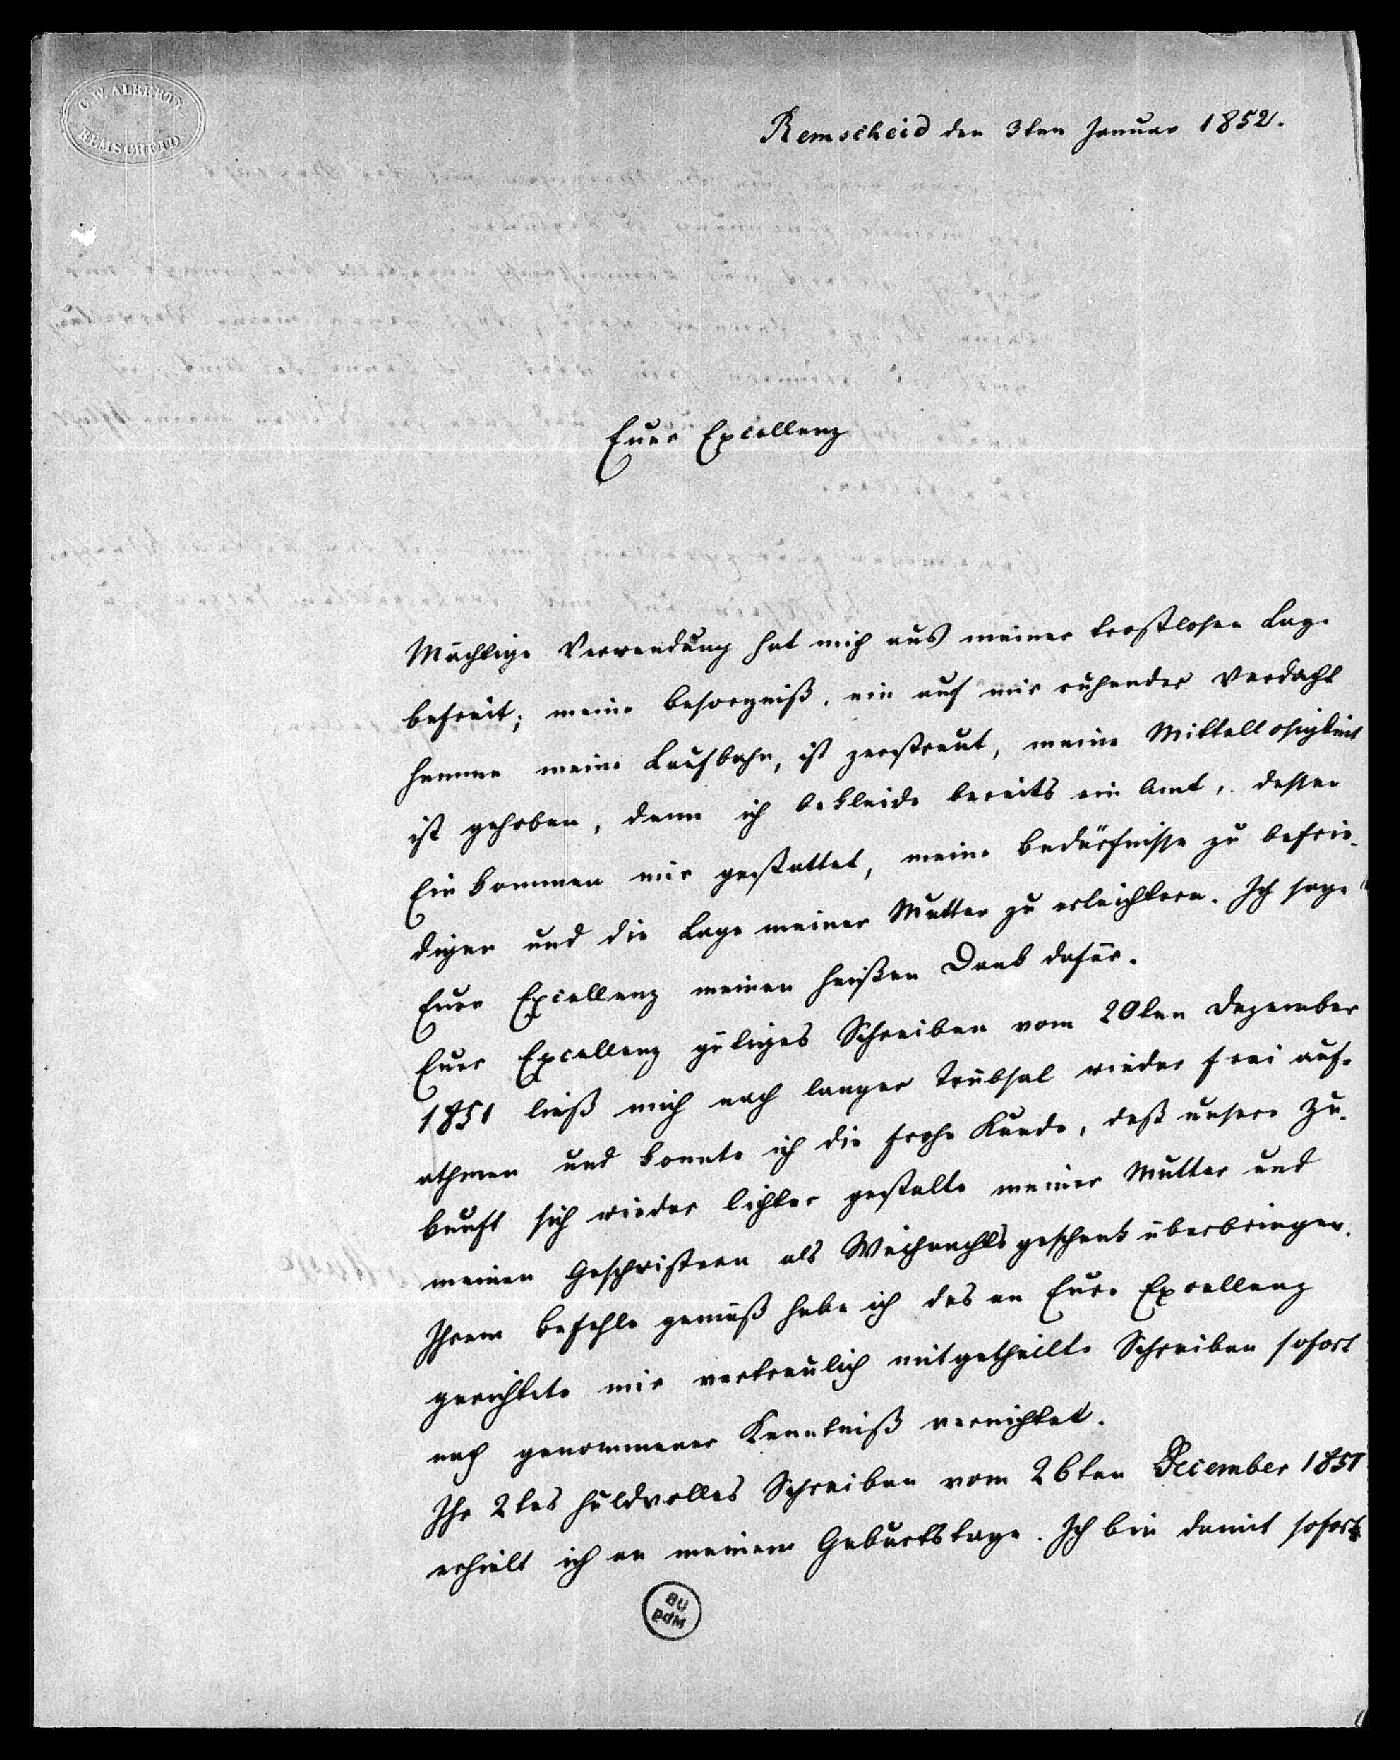 C. W. ALBERTY
REMSCHEID
Remscheid den 3ten Januar 1852.
Euer Excellenz
Mächtige Verwendung hat mich aus meiner trostlosen Lage
befreit; meine Besorgniß, ein auf mir ruhender Verdacht
hemme meine Laufbahn, ist zerstreut, meine Mittellosigkeit
ist gehoben, denn ich bekleide bereits ein Amt, dessen
Einkommen mir gestattet, meine Bedürfnisse zu befrie-
digen und die Lage meiner Mutter zu erleichtern. Ich sage
Euer Excellenz meinen heißen Dank dafür.
Euer Excellenz gütiges Schreiben vom 20ten Dezember
1851 ließ mich nach langer Trübsal wieder frei auf-
athmen und konnte ich die frohe Kunde, daß unsere Zu-
kunft sich wieder lichter gestalte meiner Mutter und
meinen Geschwistern als Weihnachtsgeschenk überbringen.
Ihrem Befehle gemäß habe ich das an Eure Excellenz
gerichtete mir vertraulich mitgetheilte Schreiben sofort
nach genommener Kenntniß vernichtet.
Ihr 2tes huldvolles Schreiben vom 26ten December 1851
erhielt ich an meinem Geburtstage. Ich bin damit sofort
BU
BdM